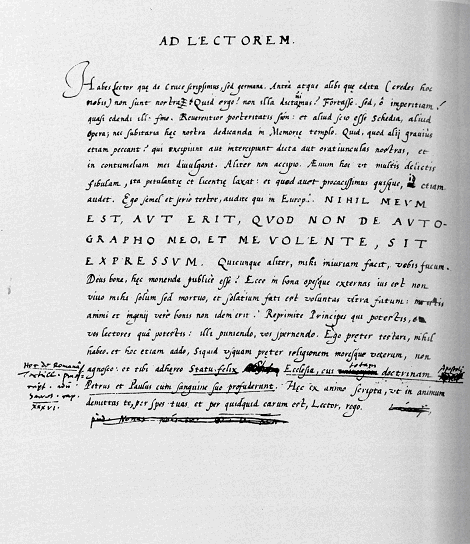 AD LECTOREM.
Habes Lector quę de Cruce scripsimus, sed germana. Antra atque alibi quę edita (credes hoc
nobis) non sunt nostra. Quid ergo? non illa dictauimus? Fortasse. sed, ô imperitiam!
quasi edendi illi fine. Reuerentior posteritatis sum: et aliud scio esse Schedia, aliud
Opera; nec subitaria hęc nostra dedicanda in Memorię templo. Quid, quod alij grauius
etiam peccant? qui excipiunt aut intercipiunt dicta aut oratiunculas nostras, et
in contumeliam mei diuulgant. Aliter non accipio. Æuum hoc vt multis delictis
fibulam, ita petulantię et licentię laxat: et quod auet procacissimus quisque, id etiam
audet. Ego semel et serio testor, audite qui in Europa. NIHIL MEVM
EST, AVT ERIT, QVOD NON DE AVTO-
GRAPHO MEO, ET ME VOLENTE, SIT
EXPRESSVM. Quicunque aliter, mihi iniuriam facit, vobis fucum.
Deus bone, hęc monenda publicè esse? Ecce in bona opesque externas ius est non
viuo mihi solùm sed mortuo, et solatium fati est voluntas vltra futum: in
animi et ingenij verè bonis non idem erit? Reprimite Principes qui potestis, et
vos lectores quà potestis: illi puniendo, vos spernendo. Ego pręter testari, nihil
habeo. et hoc etiam addo, Siquid vsquam pręter religionem moresque veterum, non
agnosco: et tibi adhęreo Statu felix Ecclesia, cui totam doctrinam Apostoli
Petrus et Paulus cum sanguine suo profuderunt. Hęc ex animo scripta, vt in animum
demittas te, per spes tuas et per quidquid carum est, Lector, rogo.
Hoc de Romana
Tertull. Pręs-
cript. adu.
hęres. cap.
xxxvi.